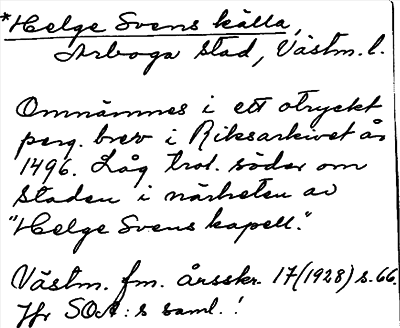 *Helge Svens källa,
Arboga stad, Västm. l.
Omnämnes i ett otryckt
perg. brev i Riksarkivet år
1496. Låg trol. söder om
staden i närheten av
"Helge Svens kapell."
Västm. fm. årsskr. 17 (1928) s. 66.
Jfr SOA:s saml.!